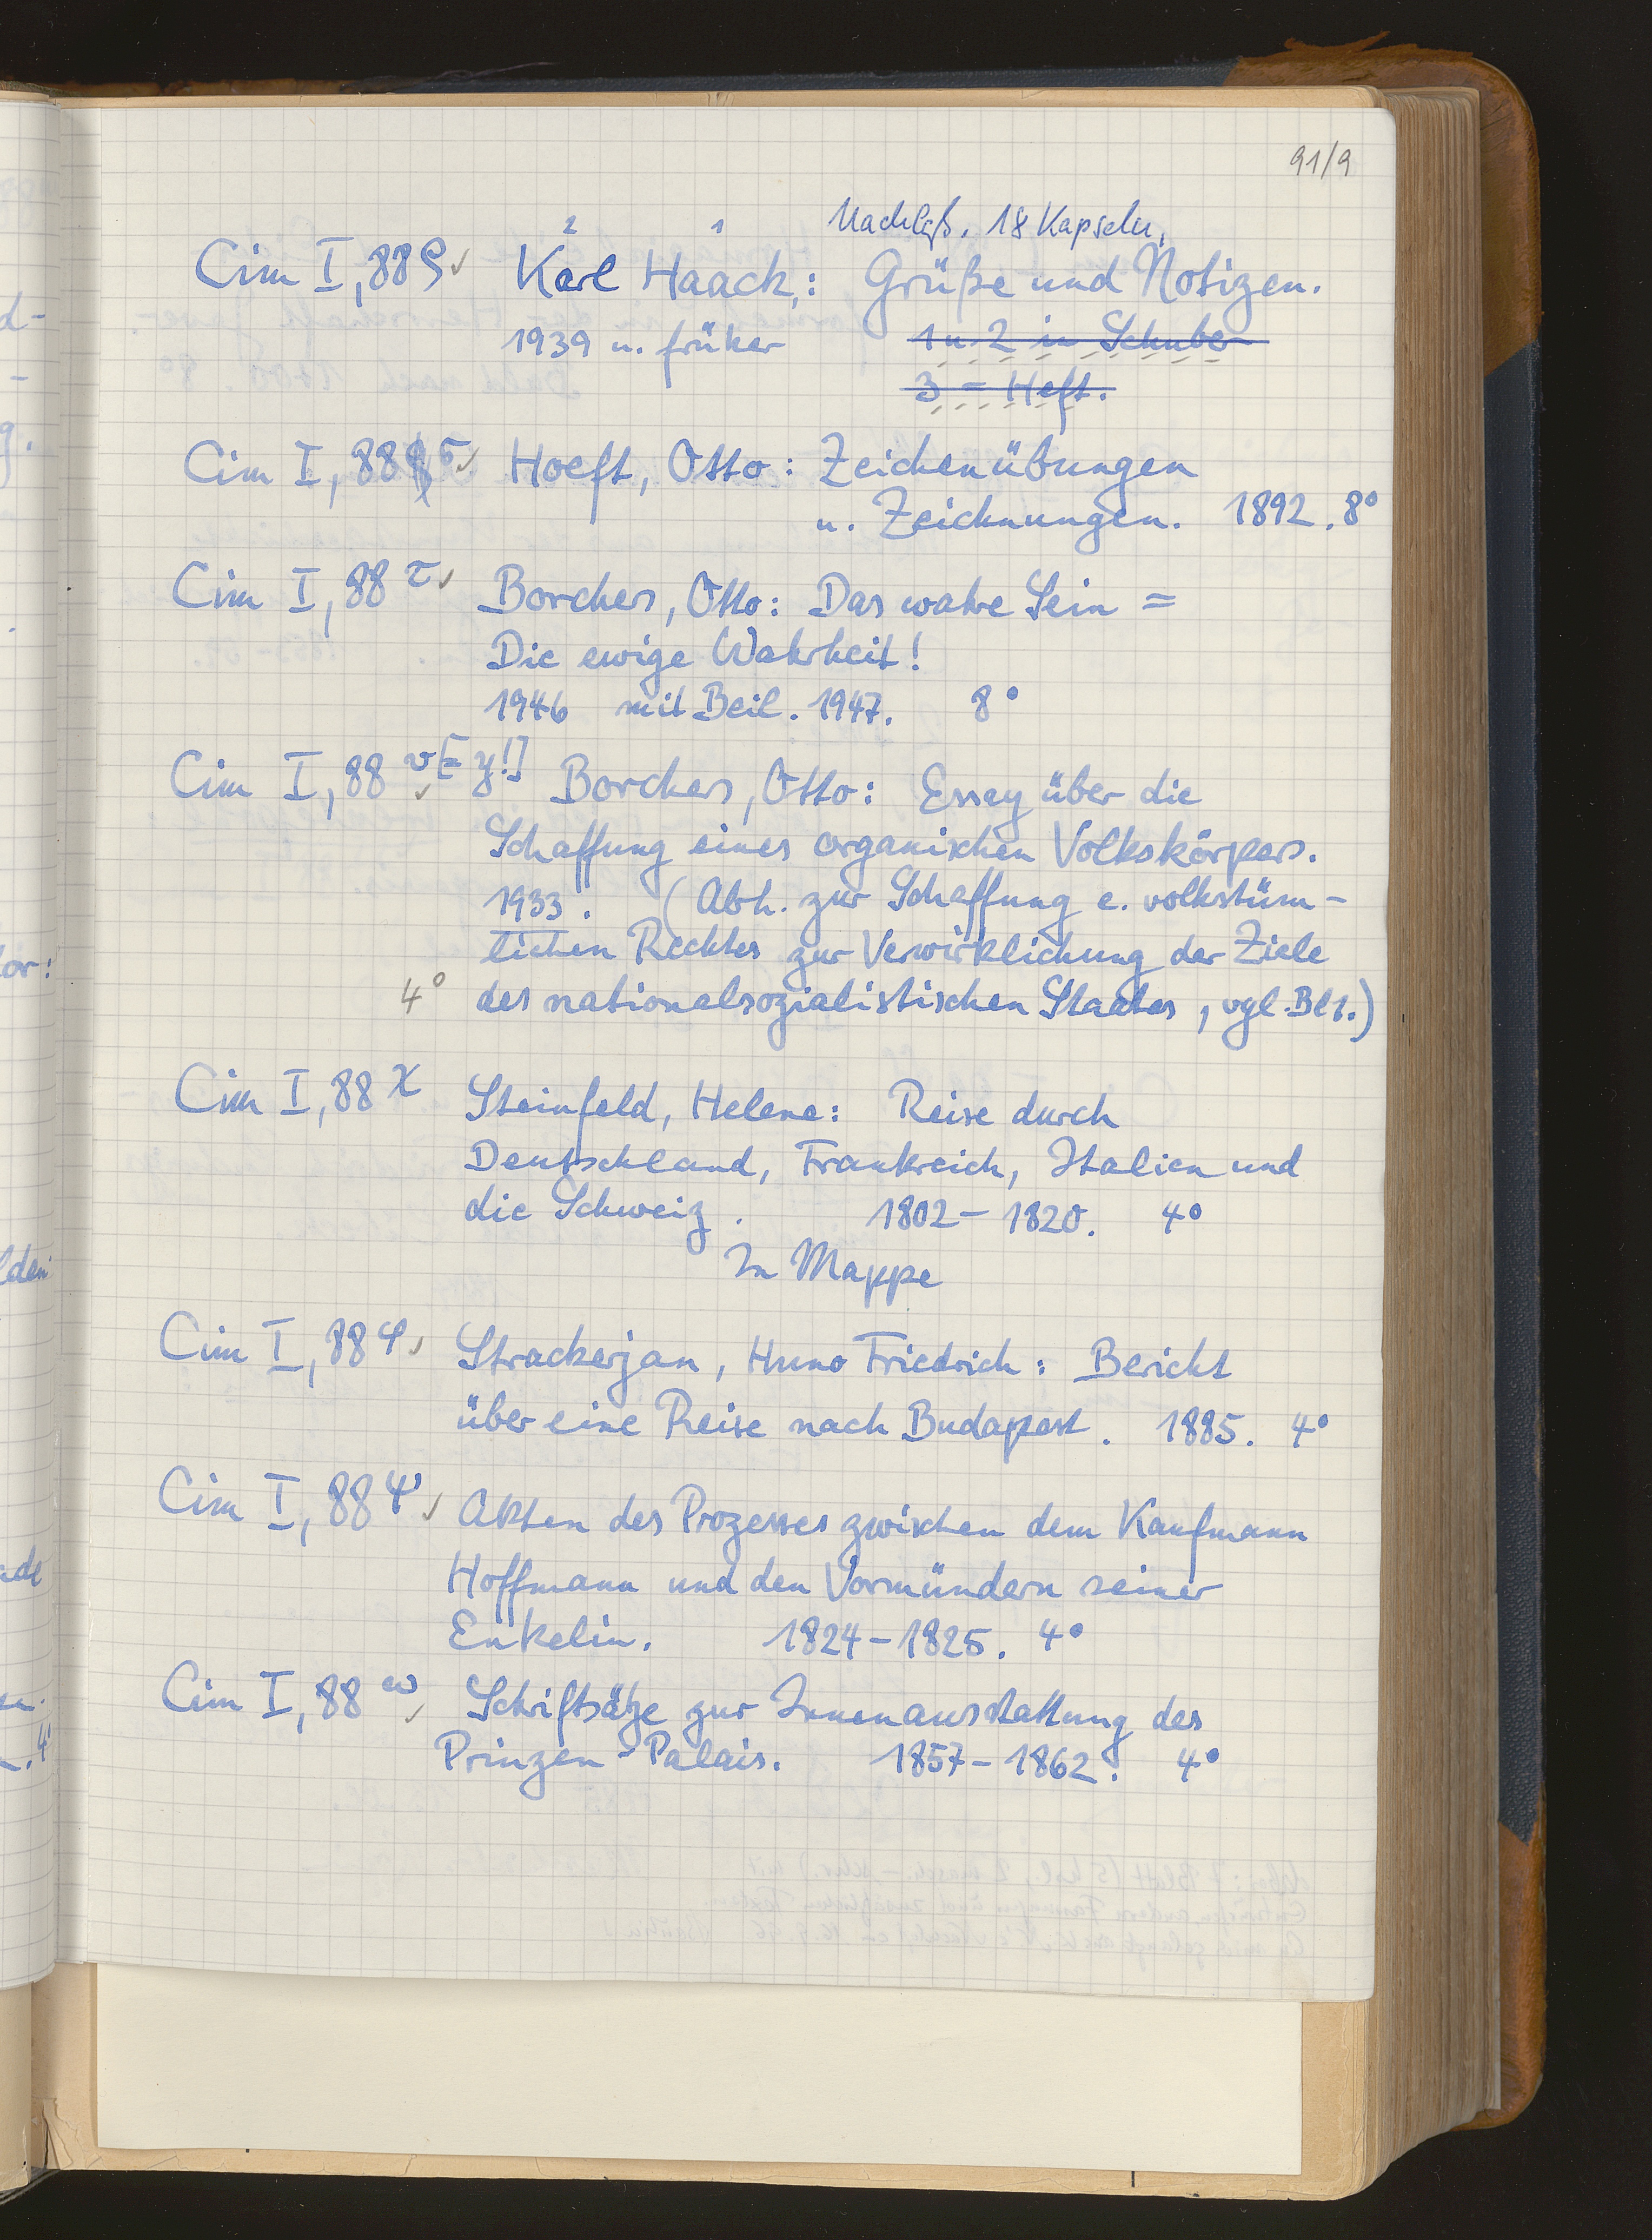 91/9
Nachlaß. 18 Kapseln.
2 1
Cim I, 88 ϱ✓ Karl Haack,: Grüße und Notizen.
1939 u. früher 1 u. 2 in Schuber
3 = Heft.
Cim I, 88 σ✓ Hoeft, Otto: Zeichenübungen
u. Zeichnungen. 1892. 8°
Cim I, 88 τ✓ Borchers, Otto: Das wahre Sein =
Die ewige Wahrheit!
1946 mit Beil. 1947. 8°
Cim I, 88 υ[= y!]✓ Borchers, Otto: Essay über die
Schaffung eines organischen Volkskörpers.
1933. (Abh. zur Schaffung e. volkstüm-
lichen Rechtes zur Verwirklichung der Ziele
4° des nationalsozialistischen Staates, vgl. Bl 1.)
Cim I, 88 χ Steinfeld, Helene: Reise durch
Deutschland, Frankreich, Italien und
die Schweiz. 1802-1820. 4°
In Mappe
Cim I, 88 φ✓ Strackerjan, Huno Friedrich: Bericht
über eine Reise nach Budapest. 1885. 4°
Cim I, 88 ψ✓ Akten des Prozesses zwischen dem Kaufmann
Hoffmann und den Vormündern seiner
Enkelin. 1824-1825. 4°
Cim I, 88 ω✓ Schriftsätze zur Innenausstattung des
Prinzen-Palais. 1857-1862. 4°